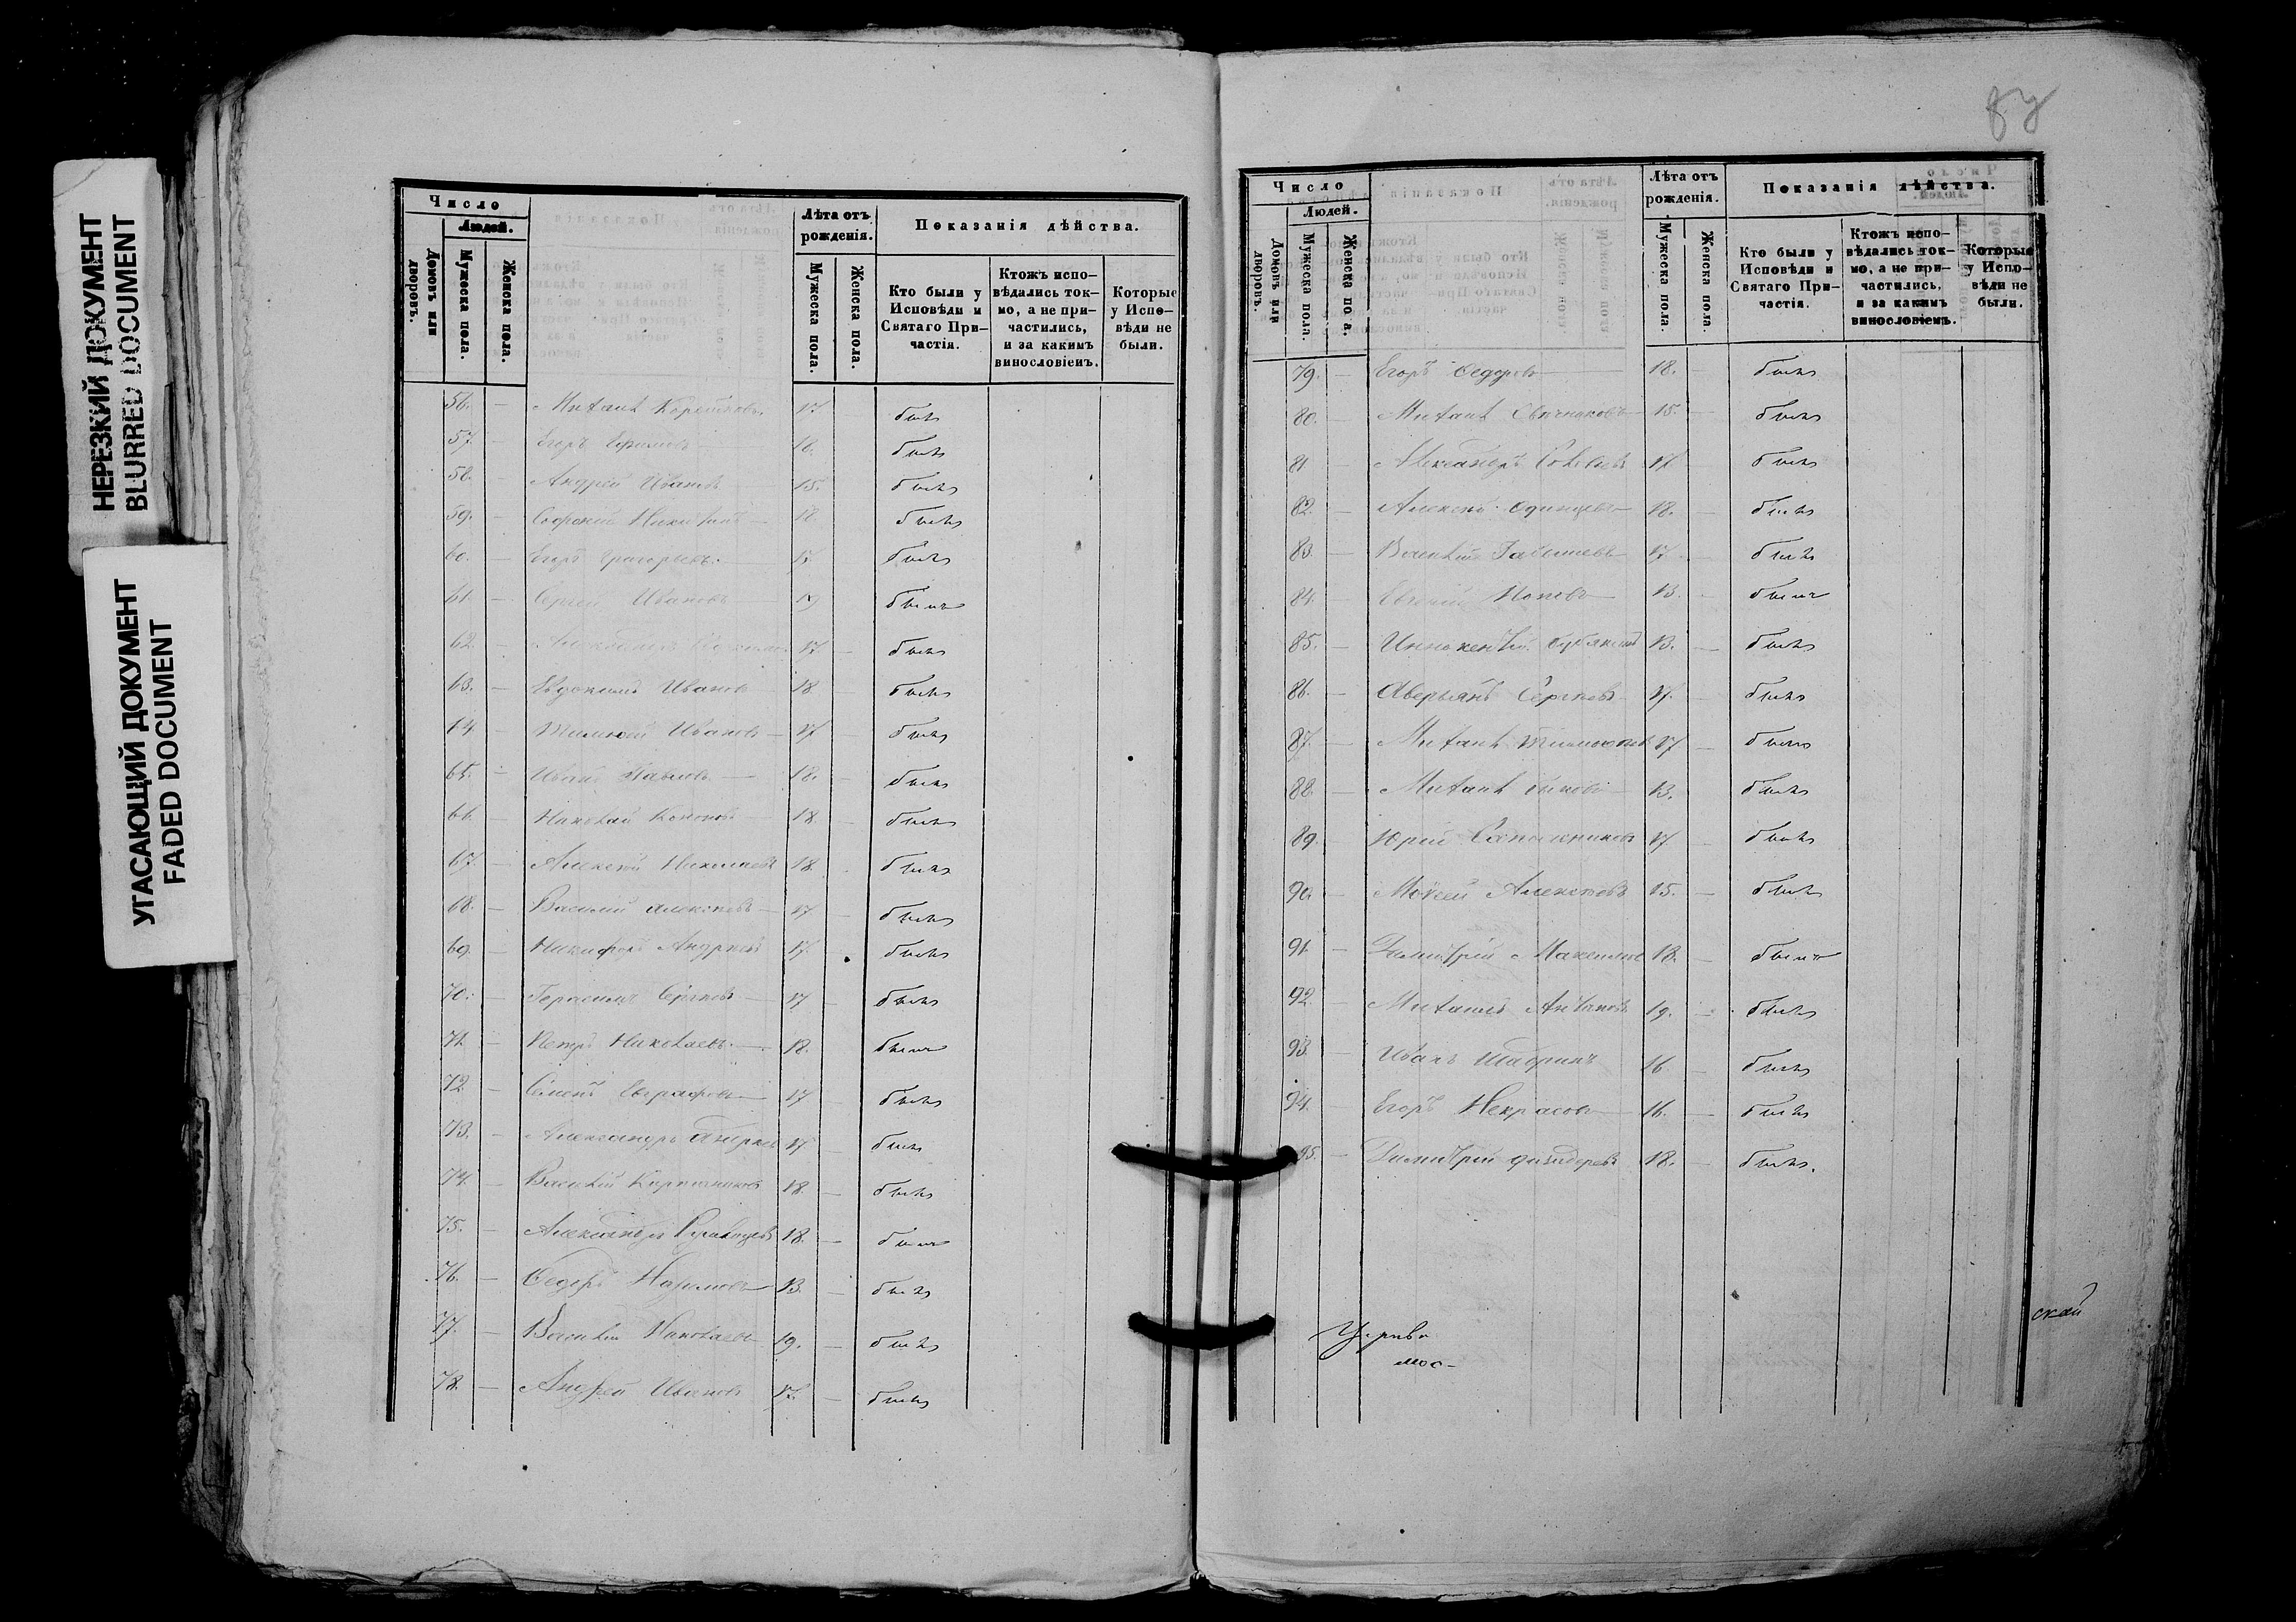 НЕРЕЗКИЙ ДОКУМЕНТ
BLURRED DOCUMENT
УГАСАЮЩИЙ ДОКУМЕНТ
FADED DOCUMENT
Число
Людей.
Домовъ или дворовъ.
Мужеска пола.
Женска пола.
Лѣта отъ рожденія.
Мужеска пола.
Женска пола.
Показанія дѣйства.
Кто были у Исповѣди и Святаго При-частія.
Ктожъ испо-вѣдались ток-мо, а не при-частились, и за какимъ винословіемъ.
Которые у Испо-вѣди не были.
56. — 17 былъ
57. — Егоръ Ефимовъ — 18. былъ
58. — Андрей Ивановъ — 15. былъ
59. — Никитинъ — 18 былъ
60. — Егоръ Григорьевъ — былъ
61. — Сергей Ивановъ — 19 былъ
62. — 17. — былъ
63. — Евдокимъ Ивановъ — 18 былъ
64. — Ивановъ — 17 былъ
65. — Иванъ Павловъ — 18. — былъ
66. — Николай Кононовъ — 18. былъ
67. — Алексей Николаевъ 18. былъ
68. — Василий Алексеевъ — 17 былъ
69. — Никифоръ Андреевъ 17. былъ
70. — Герасимъ Сергеевъ — 17 — былъ
71. — Петръ Николаевъ. — 18. былъ
72. — Семенъ Евграфовъ — 17 былъ
73. — Александръ Андреевъ 17 былъ
74. — Василий Кирпичниковъ 18. — былъ
75. — Александръ 18. — былъ
76. — Федоръ Наумовъ — 13. — былъ
77. — Василий Николаевъ 19. — былъ
78. — Андрей Ивановъ 17. — былъ
Число
Людей.
Домовъ или дворовъ.
Мужеска пола.
Женска пола.
Лѣта отъ рожденія.
Мужеска пола.
Женска пола.
Показанія дѣйства.
Кто были у Исповѣди и Святаго При-частія.
Ктожъ испо-вѣдались ток-мо, а не при-частились, и за какимъ винословіемъ.
Которые у Испо-вѣди не были.
79. — Егоръ Федоровъ — 18. — былъ
80. — Михаилъ Свѣчниковъ 15. — былъ
81 — Александръ 17 былъ
82. — Алексей Одинцовъ 18. — былъ
83. — Василий 17. — былъ
84. — Евгений Поповъ — 13. — былъ
85. — Иннокентий 13. — былъ
86. — Аверьянъ Сергеевъ 17. — былъ
87. — Михаилъ Тимофеевъ 17 — былъ
88. — Михаилъ Быковъ — 13. былъ
89. — Юрий Сапожниковъ 17. — былъ
90. — Моисей Алексеевъ 15. — былъ
91. — Димитрий Максимовъ 18. — былъ
92. — Михаилъ Антоновъ 19. — былъ
93. — Иванъ Шабринъ 16. — былъ
94. — Егоръ Некрасовъ — 16. — былъ
95. — Димитрий 18. — былъ.